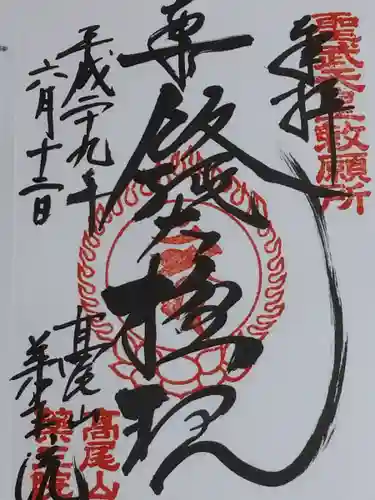 聖武天皇敕願所
奉拝
尊
飯縄大権現
平成二十九年
六月十二日
高尾山
薬王院
高尾山
薬王院